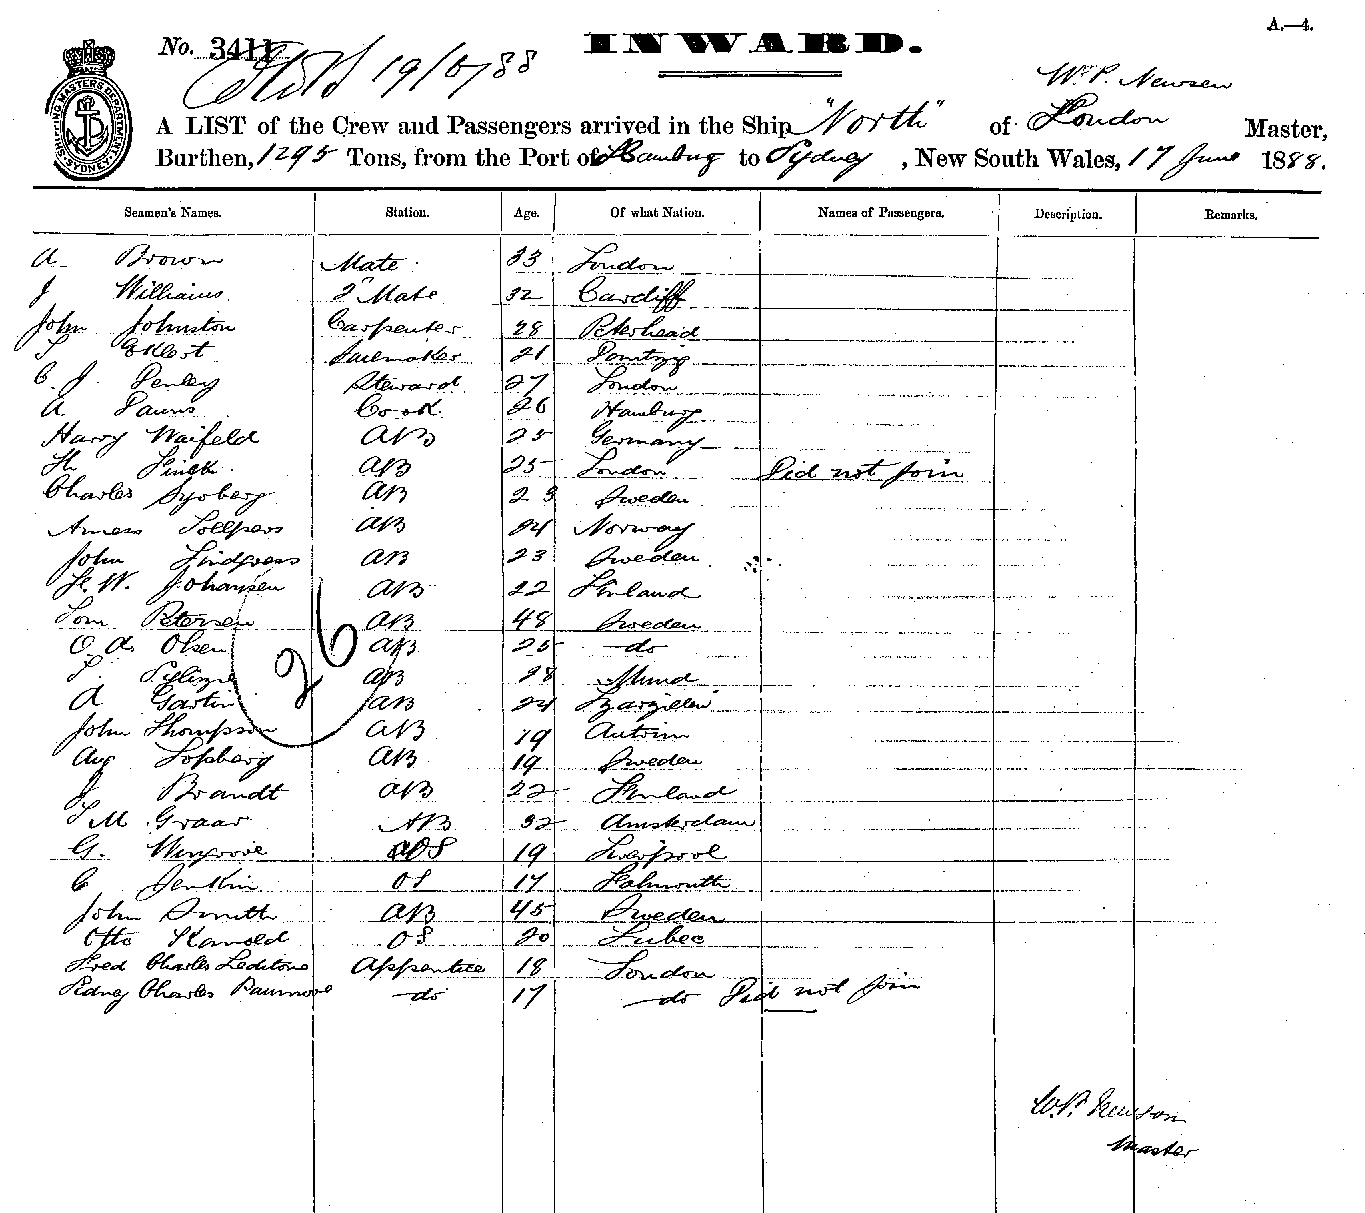 A.—4.
No. 3411
INWARD.
19/6/88
W. P. Newson
A LIST of the Crew and Passengers arrived in the Ship "North" of London Master,
Burthen, 1295 Tons, from the Port of Hamburg to Sydney, New South Wales, 17 June 1888.
SHIPPING MASTERS DEPARTMENT SYDNEY
Seamen's Names. Station. Age. Of what Nation. Names of Passengers. Description. Remarks.
A Brown Mate 33 London
J Williams 2d Mate 32 Cardiff
John Johnston Carpenter 28 Peterhead
Eklert Sailmaker 21
C. J. Penley Steward 27 London
A Cook 26 Hamburg
Harry Waifeld AB 25 Germany
AB 25 London Did not join
Charles Syoberg AB 23 Sweden
AB 24 Norway
John AB 23 Sweden
W. Johansen AB 22 Finland
Tom Petersen AB 48 Sweden
O. Olsen AB 25 do
AB 28
A AB 24
John Thompson AB 19 Antrim
Aug AB 19 Sweden
J Brandt AB 22 Finland
M Graar AB 32 Amsterdam
G. Wingrove OS 19 Liverpool
C Jenkin OS 17 Falmouth
John Smith AB 45 Sweden
Otto OS 20 Lubec
Fred Charles Ledstone Apprentice 18 London
Sidney Charles do 17 do Did not join
26
W. P. Newson
Master